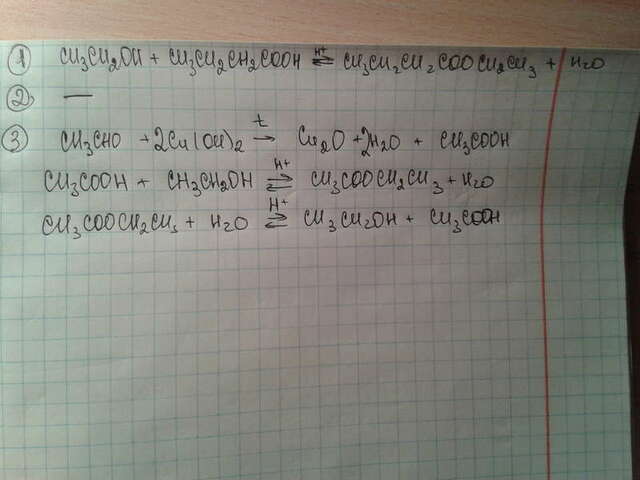 1 CH3CH2OH + CH3CH2CH2COOH ⇌ H+ CH3CH2CH2COOCH2CH3 + H2O
2 —
3 CH3CHO + 2Cu(OH)2 →t Cu2O + 2H2O + CH3COOH
CH3COOH + CH3CH2OH ⇌ H+ CH3COOCH2CH3 + H2O
CH3COOCH2CH3 + H2O ⇌ H+ CH3CH2OH + CH3COOH